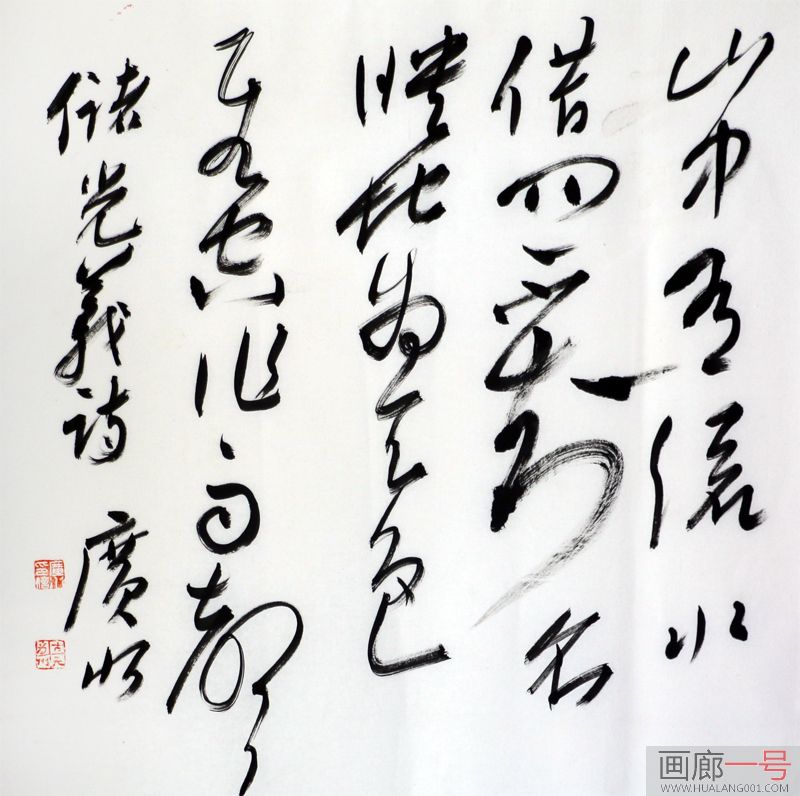 山中有流水
借問不知名
映地為天色
飛空作雨聲
儲光羲詩 廣
画廊一号
WWW.HUALANG001.COM